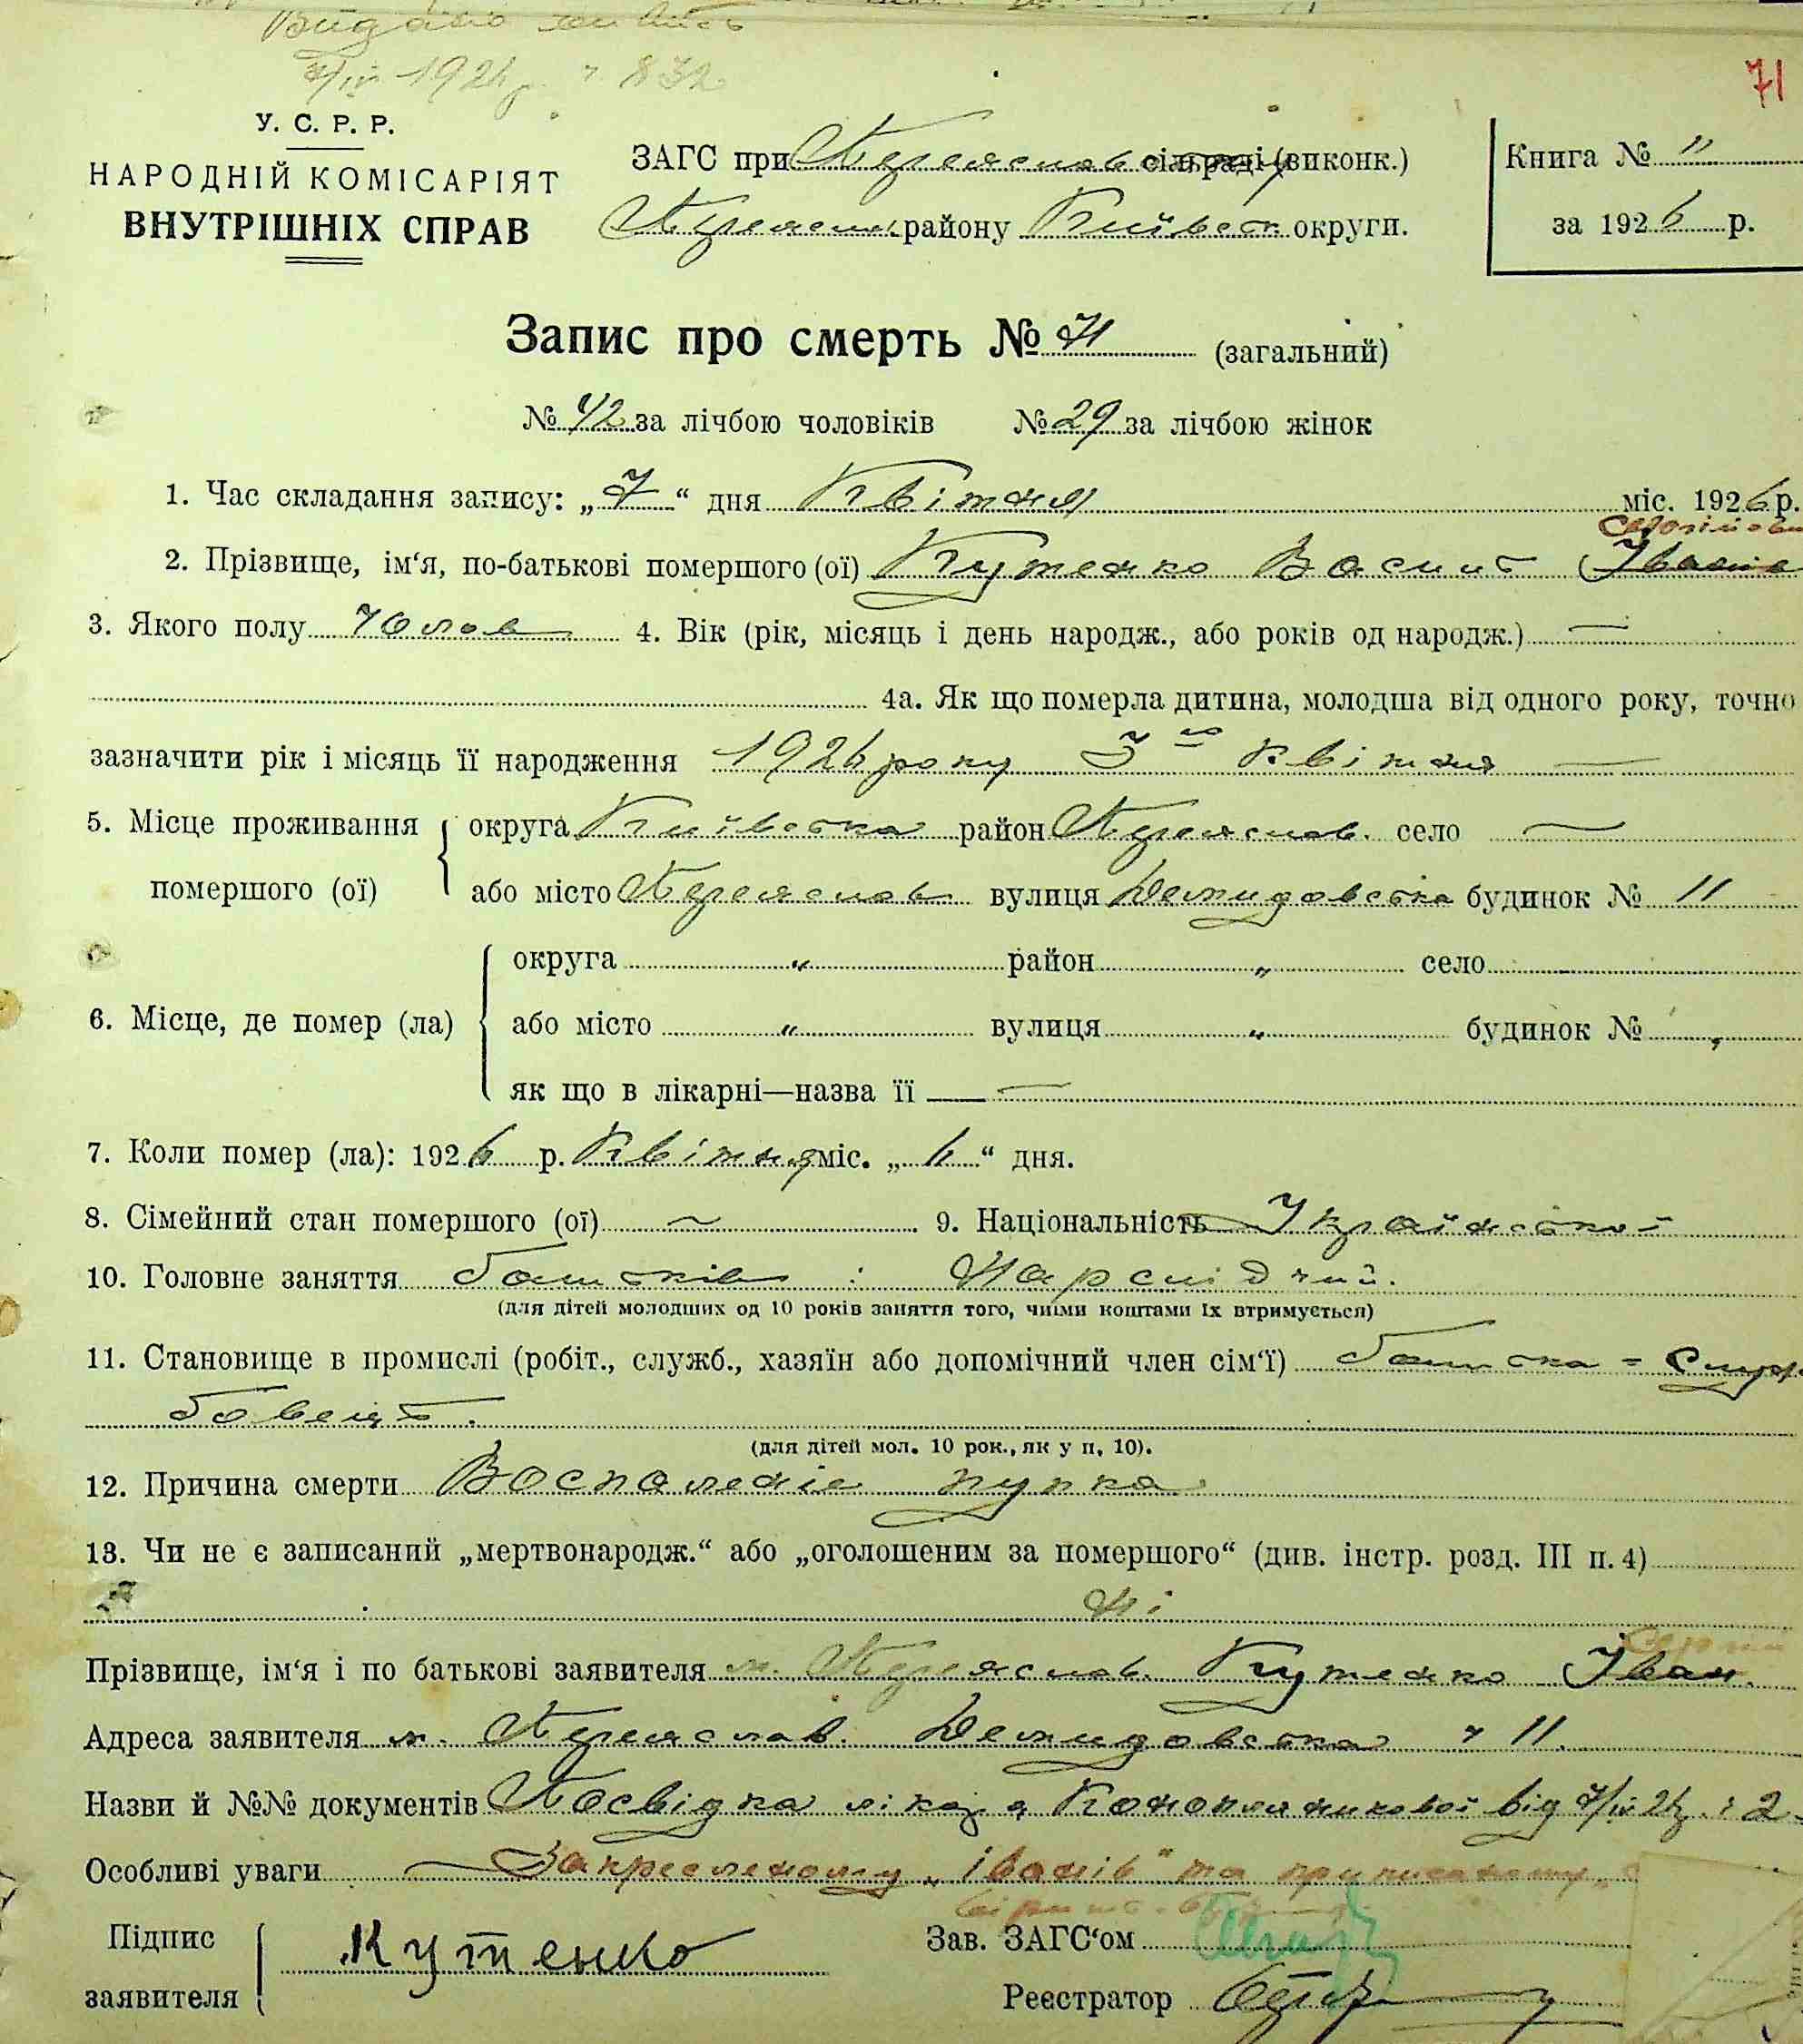 Видано
1926 р. ч 832
71
У. С. Р. Р.
НАРОДНІЙ КОМІСАРІЯТ
ВНУТРІШНІХ СПРАВ
ЗАГС при Переяславському сільраді (виконк.)
Переяслав. району Київськ. округи.
Книга № "
за 1926 р.
Запис про смерть № 71 (загальний)
№ 42 за лічбою чоловіків № 29 за лічбою жінок
1. Час складання запису: „7“ дня Квітня міс. 1926 р.
2. Прізвище, ім‘я, по-батькові помершого (ої) Кутенко Василь
3. Якого полу Чолов 4. Вік (рік, місяць і день народж., або років од народж.) —
4а. Як що померла дитина, молодша від одного року, точно
зазначити рік і місяць її народження 1926 року 3го Квітня —
5. Місце проживання помершого (ої) округа Київська район Переяслав. село —
або місто Переяслав вулиця Демидовська будинок № 11
6. Місце, де помер (ла) округа " район " село
або місто " вулиця " будинок № "
як що в лікарні—назва її —
7. Коли помер (ла): 1926 р. Квітня міс. „6“ дня.
8. Сімейний стан помершого (ої) ~ 9. Національність Української
10. Головне заняття батьків: Нарслідчий.
(для дітей молодших од 10 років заняття того, чиїми коштами їх втримується)
11. Становище в промислі (робіт., служб., хазяїн або допомічний член сім‘ї) батька = служ-
бовець.
(для дітей мол. 10 рок., як у п. 10).
12. Причина смерти Воспаленіе пупка
13. Чи не є записаний „мертвонародж.“ або „оголошеним за помершого“ (див. інстр. розд. III п. 4)
Ні
Прізвище, ім‘я і по батькові заявителя м. Переяслав. Кутенко Іван
Адреса заявителя м. Переяслав. Демидовська ч 11.
Назви й №№ документів Посвідка лікаря Коноплянникової від 7/IV 26 р. ч 2
Особливі уваги — Закресленому „Іванів“ та приписаному „
Підпис заявителя Кутенко
Зав. ЗАГС‘ом
Реєстратор